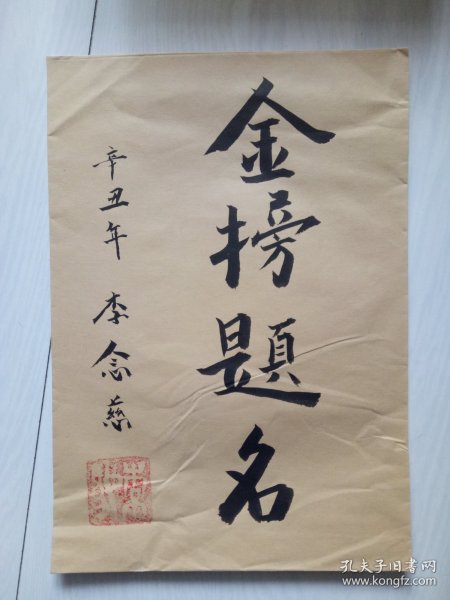 金榜題名
辛丑年 李念慈
孔夫子旧书网
www.kongfz.com